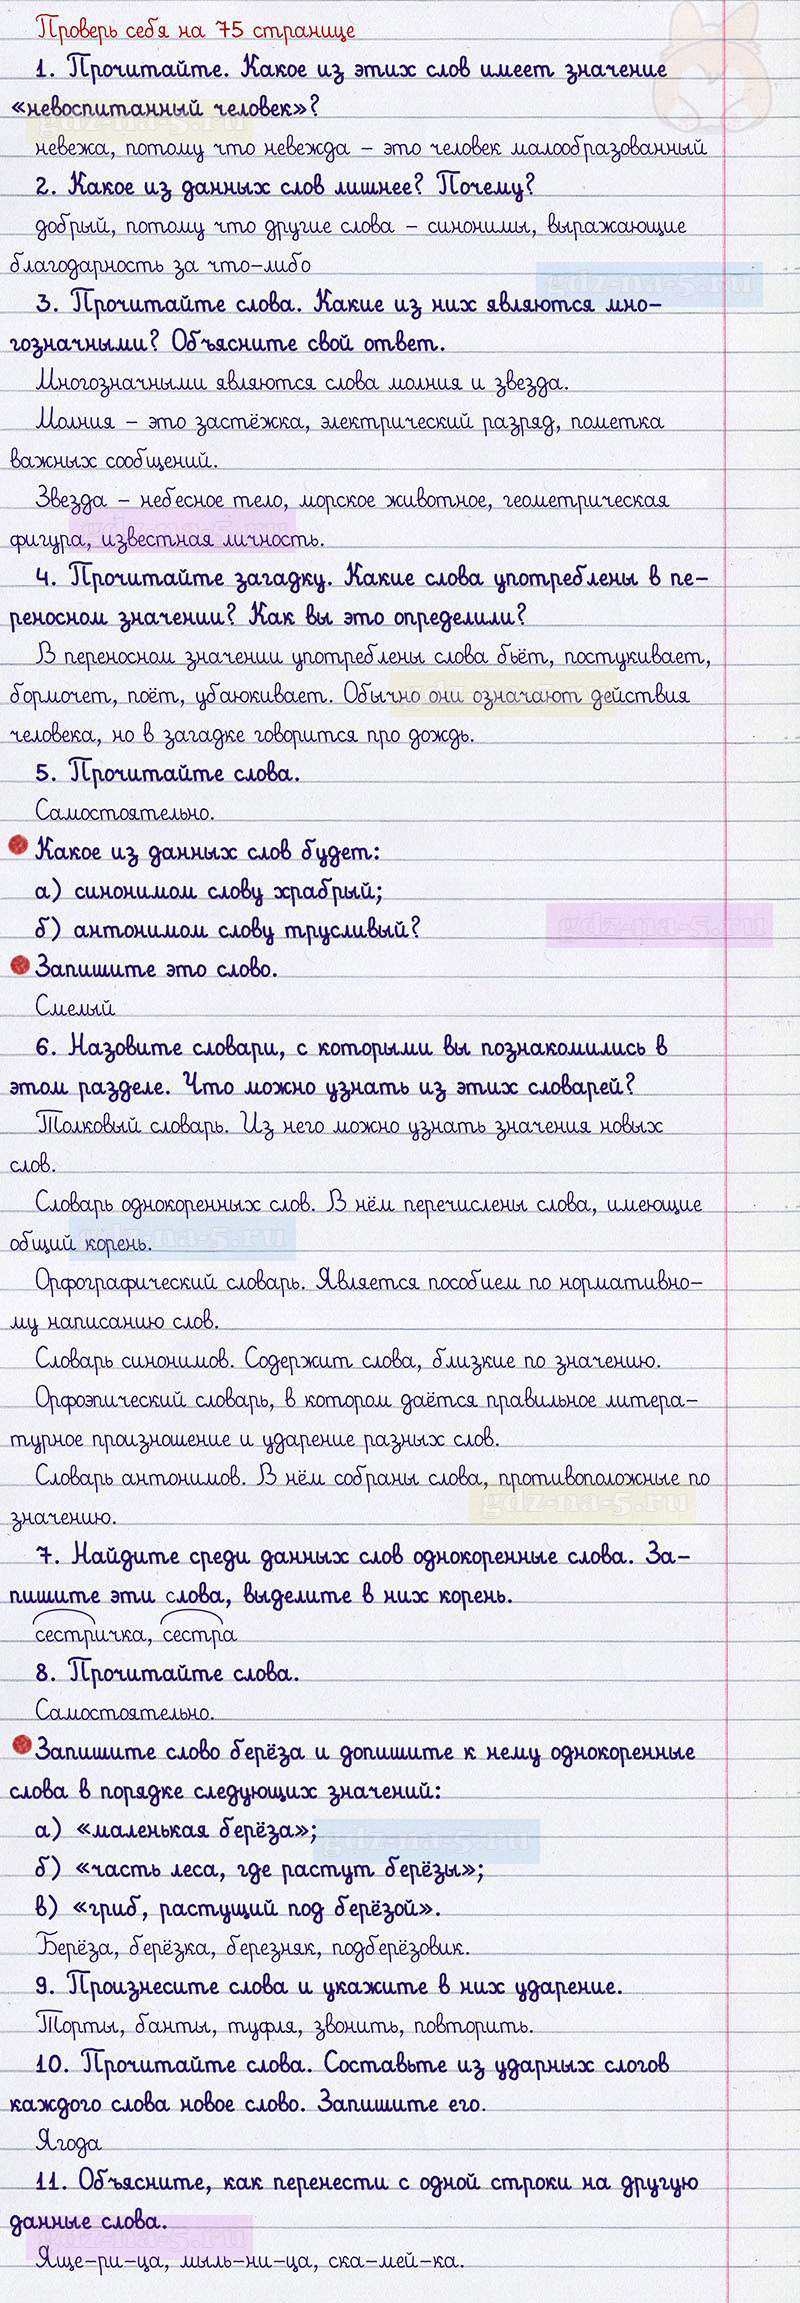 Проверь себя на 75 странице
1. Прочитайте. Какое из этих слов имеет значение
«невоспитанный человек»?
gdz-na-5.ru
невежа, потому что невежда – это человек малообразованный
2. Какое из данных слов лишнее? Почему?
добрый, потому что другие слова – синонимы, выражающие
благодарность за что-либо
gdz-na-5.ru
3. Прочитайте слова. Какие из них являются мно-
гозначными? Объясните свой ответ.
Многозначными являются слова молния и звезда.
Молния – это застёжка, электрический разряд, пометка
важных сообщений.
Звезда – небесное тело, морское животное, геометрическая
gdz-na-5.ru
фигура, известная личность.
4. Прочитайте загадку. Какие слова употреблены в пе-
реносном значении? Как вы это определили?
В переносном значении употреблены слова бьёт, постукивает,
бормочет, поёт, убаюкивает. Обычно они означают действия
gdz-na-5.ru
человека, но в загадке говорится про дождь.
5. Прочитайте слова.
Самостоятельно.
Какое из данных слов будет:
а) синонимом слову храбрый;
б) антонимом слову трусливый?
gdz-na-5.ru
Запишите это слово.
Смелый
6. Назовите словари, с которыми вы познакомились в
этом разделе. Что можно узнать из этих словарей?
Толковый словарь. Из него можно узнать значения новых
слов.
Словарь однокоренных слов. В нём перечислены слова, имеющие
общий корень.
gdz-na-5.ru
Орфографический словарь. Является пособием по нормативно-
му написанию слов.
Словарь синонимов. Содержит слова, близкие по значению.
Орфоэпический словарь, в котором даётся правильное литера-
турное произношение и ударение разных слов.
Словарь антонимов. В нём собраны слова, противоположные по
gdz-na-5.ru
значению.
7. Найдите среди данных слов однокоренные слова. За-
пишите эти слова, выделите в них корень.
сестричка, сестра
8. Прочитайте слова.
Самостоятельно.
Запишите слово берёза и допишите к нему однокоренные
слова в порядке следующих значений:
а) «маленькая берёза»;
gdz-na-5.ru
б) «часть леса, где растут берёзы»;
в) «гриб, растущий под берёзой».
Берёза, берёзка, березняк, подберёзовик.
9. Произнесите слова и укажите в них ударение.
Торты, банты, туфля, звонить, повторить.
10. Прочитайте слова. Составьте из ударных слогов
каждого слова новое слово. Запишите его.
Ягода
11. Объясните, как перенести с одной строки на другую
данные слова.
gdz-na-5.ru
Яще-ри-ца, мыль-ни-ца, ска-мей-ка.